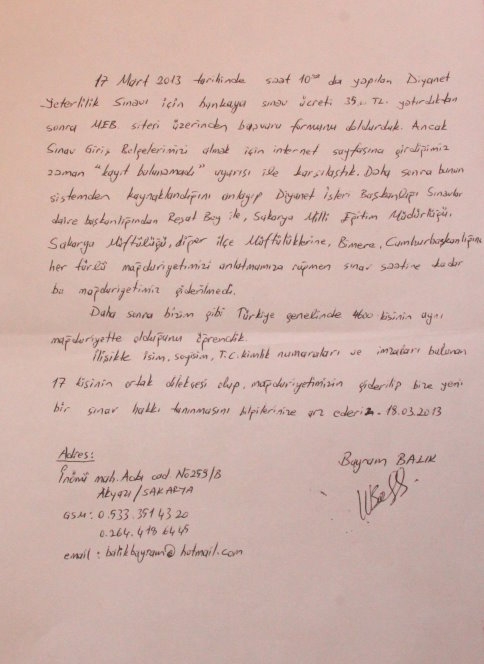 17 Mart 2013 tarihinde saat 10⁰⁰ da yapılan Diyanet
Yeterlilik Sınavı için bankaya sınav ücreti 35,- TL. yatırdıktan
sonra M.E.B. sitesi üzerinden başvuru formunu doldurduk. Ancak
Sınav Giriş Belgelerimizi almak için internet sayfasına girdiğimiz
zaman "kayıt bulunamadı" uyarısı ile karşılaştık. Daha sonra bunun
sistemden kaynaklandığını anlayıp Diyanet İşleri Başkanlığı Sınavlar
daire başkanlığından Reşat Bey ile, Sakarya Milli Eğitim Müdürlüğü,
Sakarya Müftülüğü, diğer ilçe Müftülüklerine, Bimere, Cumhurbaşkanlığına
her türlü mağduriyetimizi anlatmamıza rağmen sınav saatine kadar
bu mağduriyetimiz giderilmedi.
Daha sonra bizim gibi Türkiye genelinde 4600 kişinin aynı
mağduriyette olduğunu öğrendik.
İlişikte isim, soyisim, T.C. kimlik numaraları ve imzaları bulunan
17 kişinin ortak dilekçesi olup, mağduriyetimizin giderilip bize yeni
bir sınav hakkı tanınmasını bilgilerinize arz ederiz. 18.03.2013
Adres:
İnönü mah. Ada cad No 255/B
Akyazı/SAKARYA
GSM: 0.533.351 43 20
0.264.418 64 45
email: balikbayram@hotmail.com
Bayram BALIK